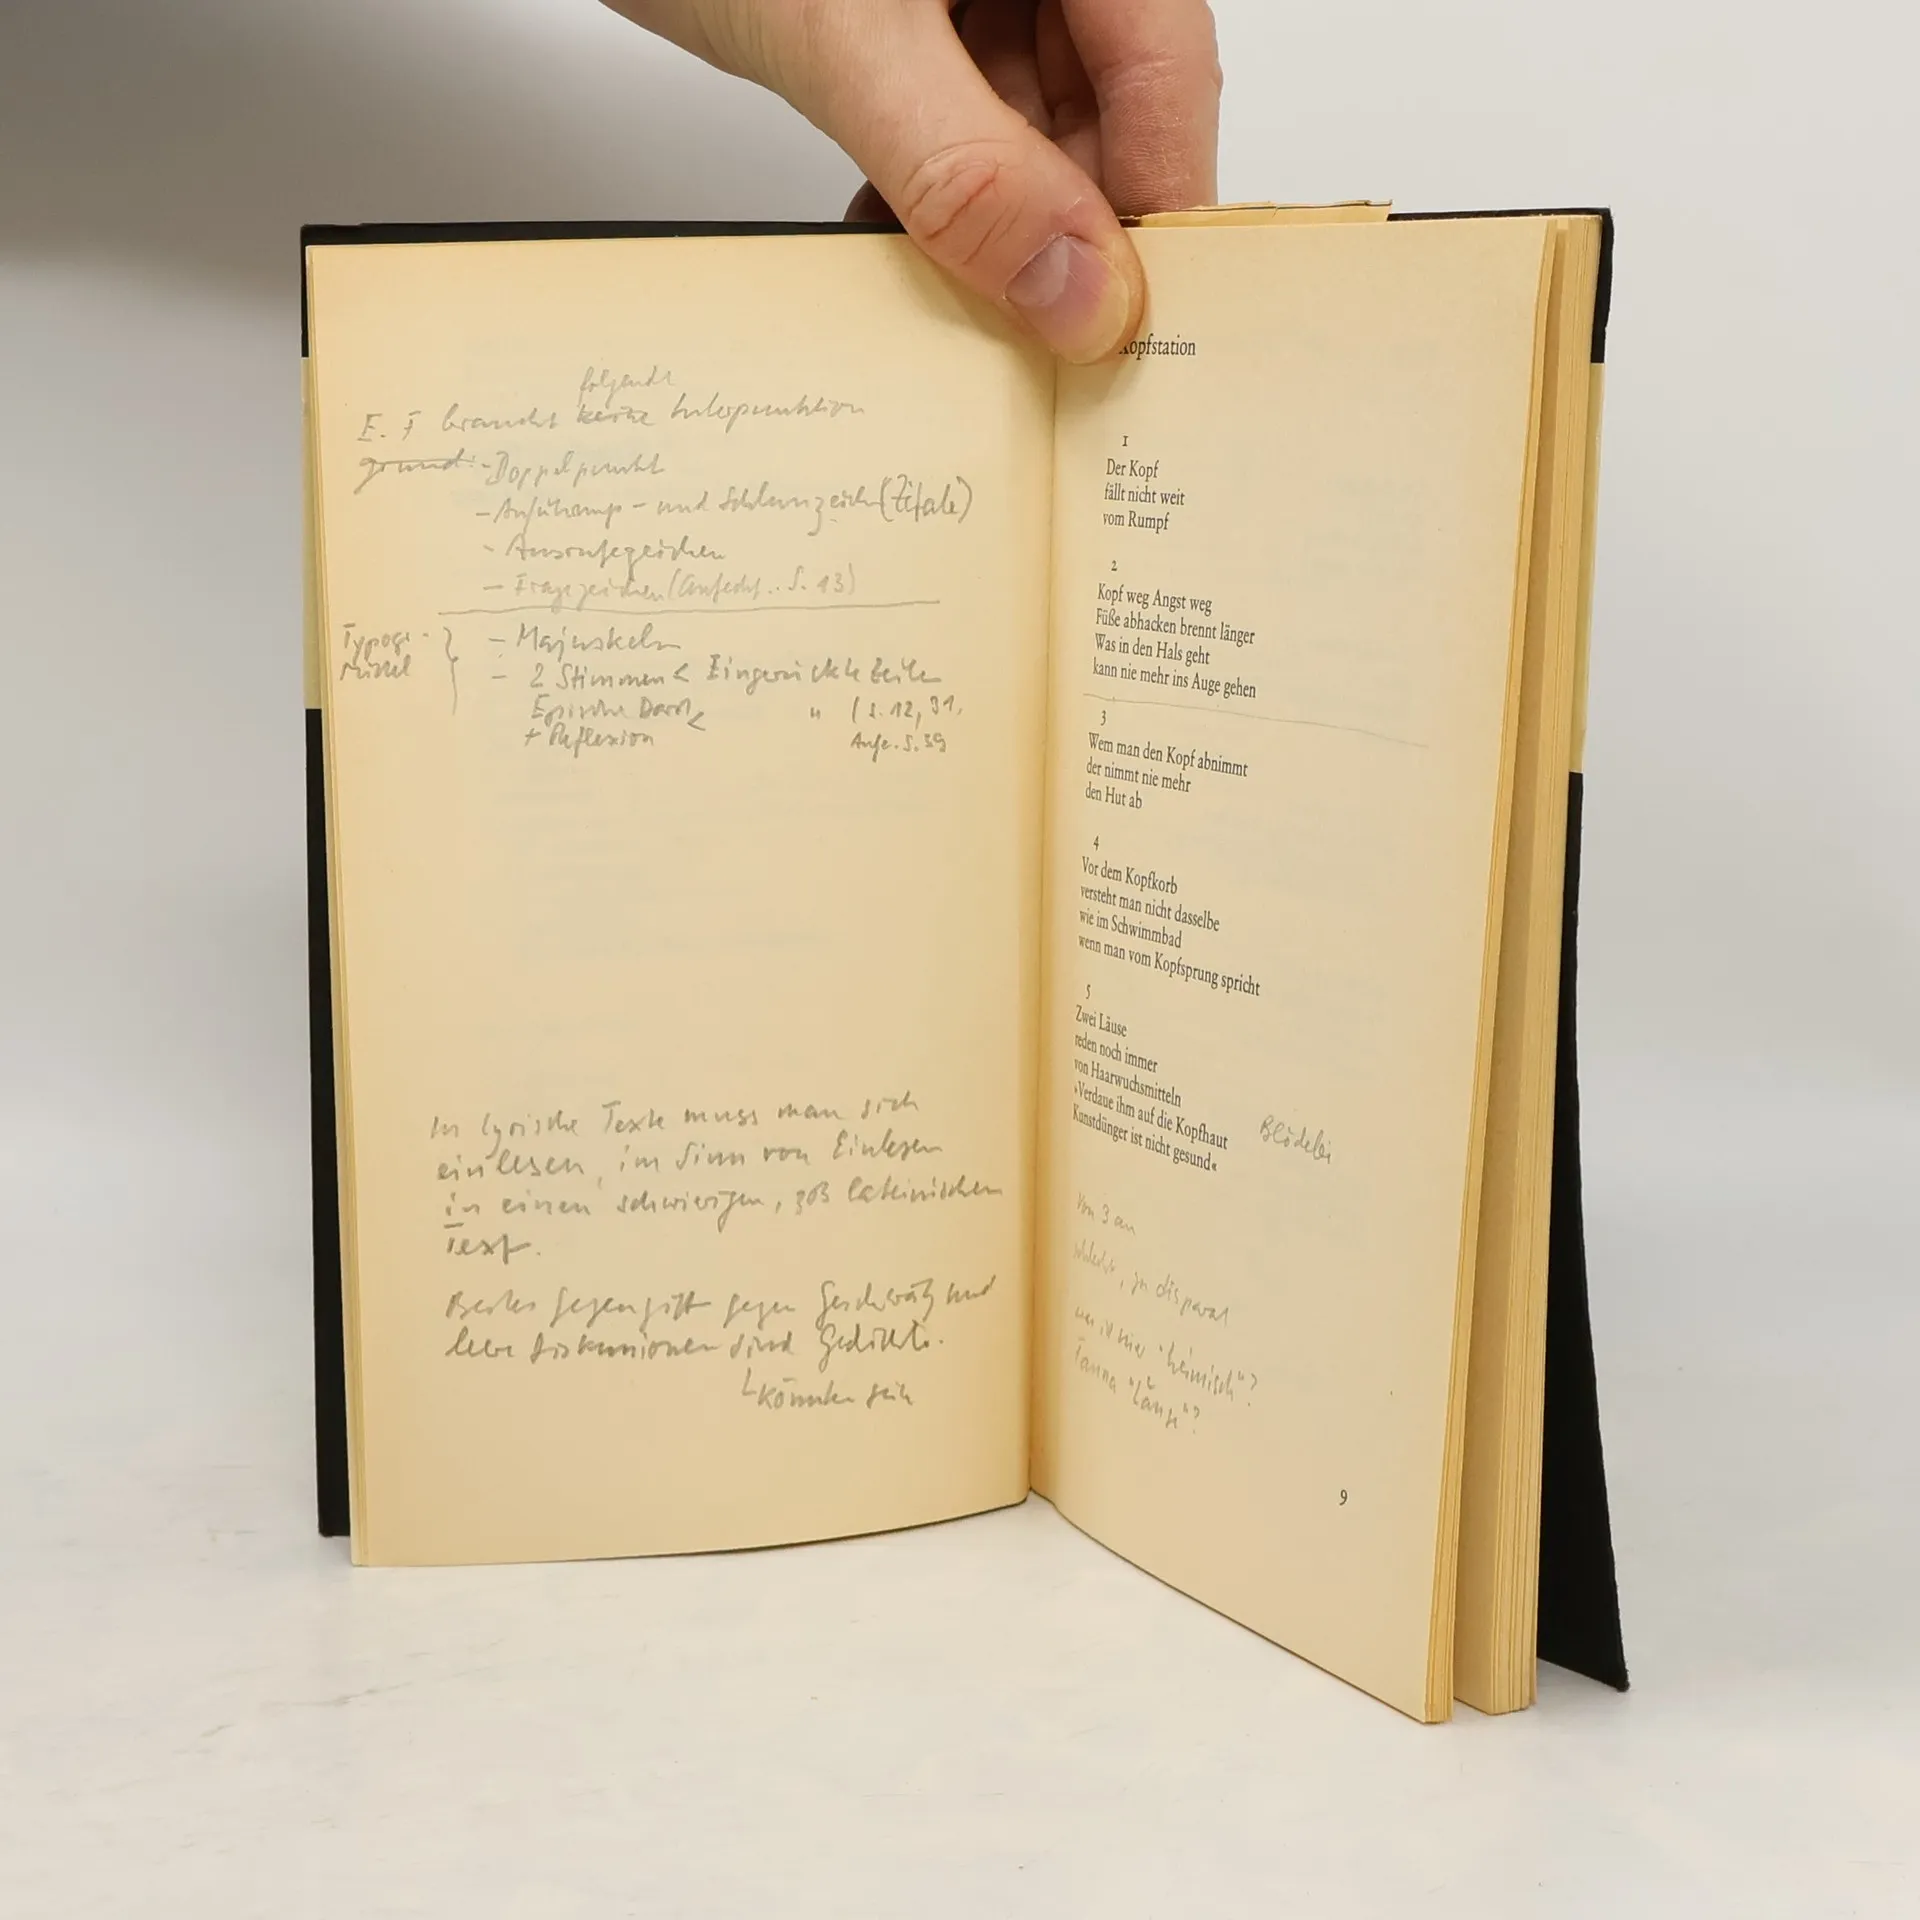 folgende
E. F braucht keine Interpunktion
grund: - Doppelpunkt
- Anführungs- und Schlusszeichen (Zitate)
- Ausrufezeichen
- Fragezeichen (Anfecht.. S. 13)
Typogr.
mittel
- Majuskeln
- 2 Stimmen < Eingerückte Zeilen
Epische Darst < " ( S. 12, 31,
+ Reflexion Anfe. S. 39
In lyrische Texte muss man sich
einlesen, im Sinn von Einlesen
in einen schwierigen, zB lateinischen
Text.
Bestes Gegengift gegen Geschwätz und
leere Diskussionen sind Gedichte.
könnten sein
opfstation
1
Der Kopf
fällt nicht weit
vom Rumpf
2
Kopf weg Angst weg
Füße abhacken brennt länger
Was in den Hals geht
kann nie mehr ins Auge gehen
3
Wem man den Kopf abnimmt
der nimmt nie mehr
den Hut ab
4
Vor dem Kopfkorb
versteht man nicht dasselbe
wie im Schwimmbad
wenn man vom Kopfsprung spricht
5
Zwei Läuse
reden noch immer
von Haarwuchsmitteln
»Verdaue ihm auf die Kopfhaut
Kunstdünger ist nicht gesund«
Blödelei
von 3 an
schlecht, zu disparat
wer ist hier "heimisch"?
"Läuse"?
9